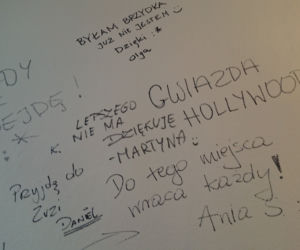 BYŁAM BRZYDKA
JUŻ NIE JESTEM
Dzięki :*
Olga
DY
EJDĘ!
:*
LEPSZEGO
K. NIE MA
GWIAZDA
DZIĘKUJE HOLLYWOOD
-MARTYNA
Przyjdę do
Zuzi
DANIEL
Do tego miejsca
wraca każdy!
Ania S.